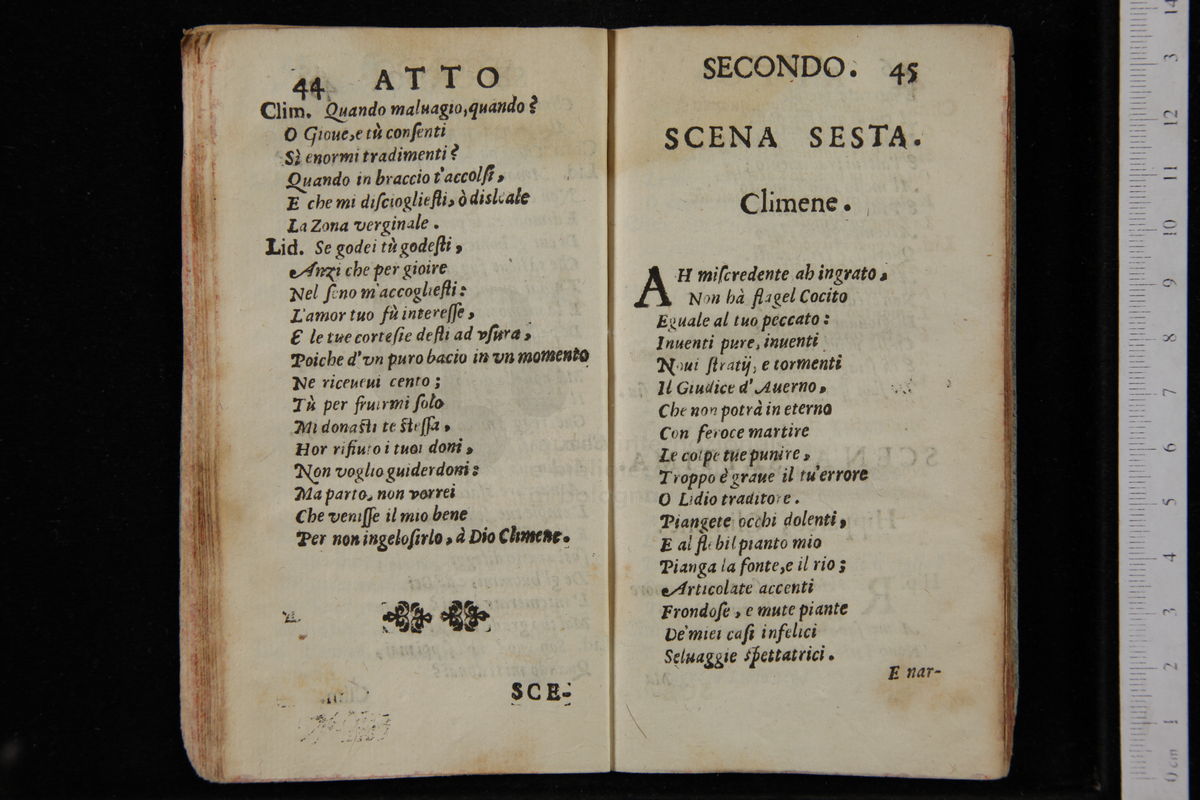 44 ATTO
Clim. Quando maluagio, quando?
O Gioue, e tù consenti
Sì enormi tradimenti?
Quando in braccio t'accolsi,
E che mi disciogliesti, ò disleale
La Zona verginale.
Lid. Se godei tù godesti,
Anzi che per gioire
Nel seno m'accogliesti:
L'amor tuo fù interesse,
E le tue cortesie desti ad vsura,
Poiche d'vn puro bacio in vn momento
Ne riceueui cento;
Tù per fruirmi solo
Mi donasti te stessa,
Hor rifiuto i tuoi doni,
Non voglio guiderdoni:
Ma parto, non vorrei
Che venisse il mio bene
Per non ingelosirlo, à Dio Climene.
SCE-
SECONDO. 45
SCENA SESTA.
Climene.
AH miscredente ah ingrato,
Non hà flagel Cocito
Eguale al tuo peccato:
Inuenti pure, inuenti
Noui stratij, e tormenti
Il Giudice d'Auerno,
Che non potrà in eterno
Con feroce martire
Le colpe tue punire,
Troppo è graue il tu'errore
O Lidio traditore.
Piangete occhi dolenti,
E al flebil pianto mio
Pianga la fonte, e il rio;
Articolate accenti
Frondose, e mute piante
De'miei casi infelici
Seluaggie spettatrici.
E nar-
14
13
12
11
10
9
8
7
6
5
4
3
2
1
0 cm